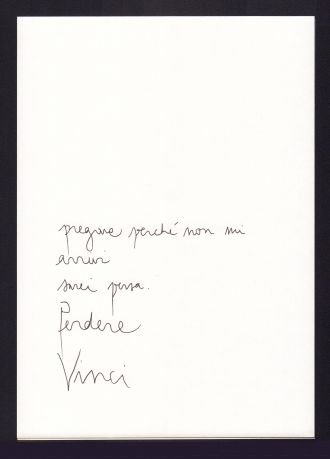 pregare perché non mi
arrivi
sarei persa.
Perdere
Vinci